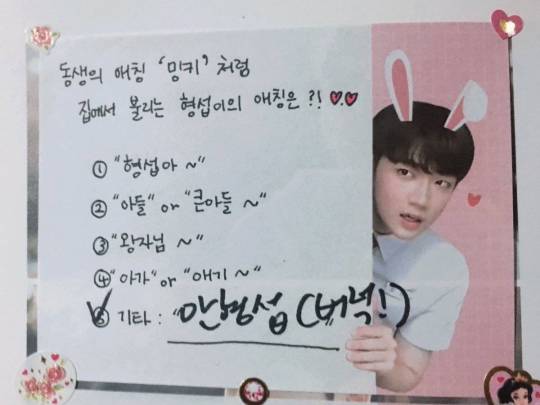 동생의 애칭 '밍키' 처럼
집에서 불리는 형섭이의 애칭은?! ♥.♥
① "형섭아 ~"
② "아들" or "큰아들 ~"
③ "왕자님 ~"
④ "아가" or "애기 ~"
⑤ 기타 : "안형섭 (버럭!)